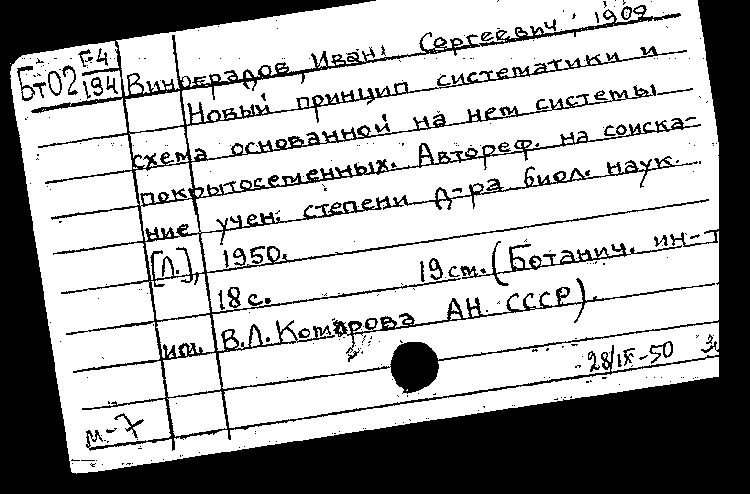 Бт02 Г-4/194
Виноградов, Иван Сергеевич, 1909
Новый принцип систематики и
схема основанной на нем системы
покрытосеменных. Автореф. на соиска-
ние учен. степени д-ра биол. наук.
[Л.], 1950.
18 с. 19 см. (Ботанич. ин-т
им. В.Л. Комарова АН СССР).
28/IX-50
м-7